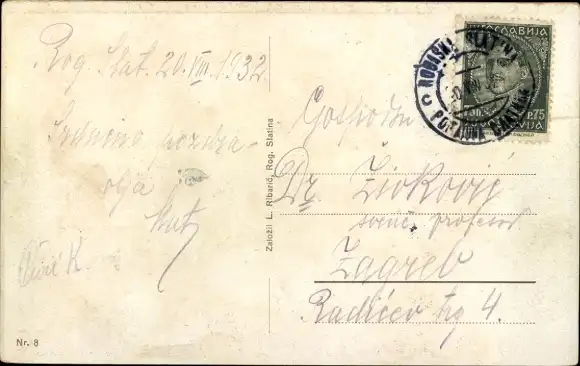 Rog. Slat. 20. VIII. 1932
Srdačno pozdra-
vlja
Nr. 8
Založil L. Ribarič, Rog. Slatina
ЈУГОСЛАВИЈА
0.75
ROGAŠKA SLATINA
РОГАШКА СЛАТИНА
Gospodin
Dr. Živković
sveuč. profesor
Zagreb
Radićev trg 4.